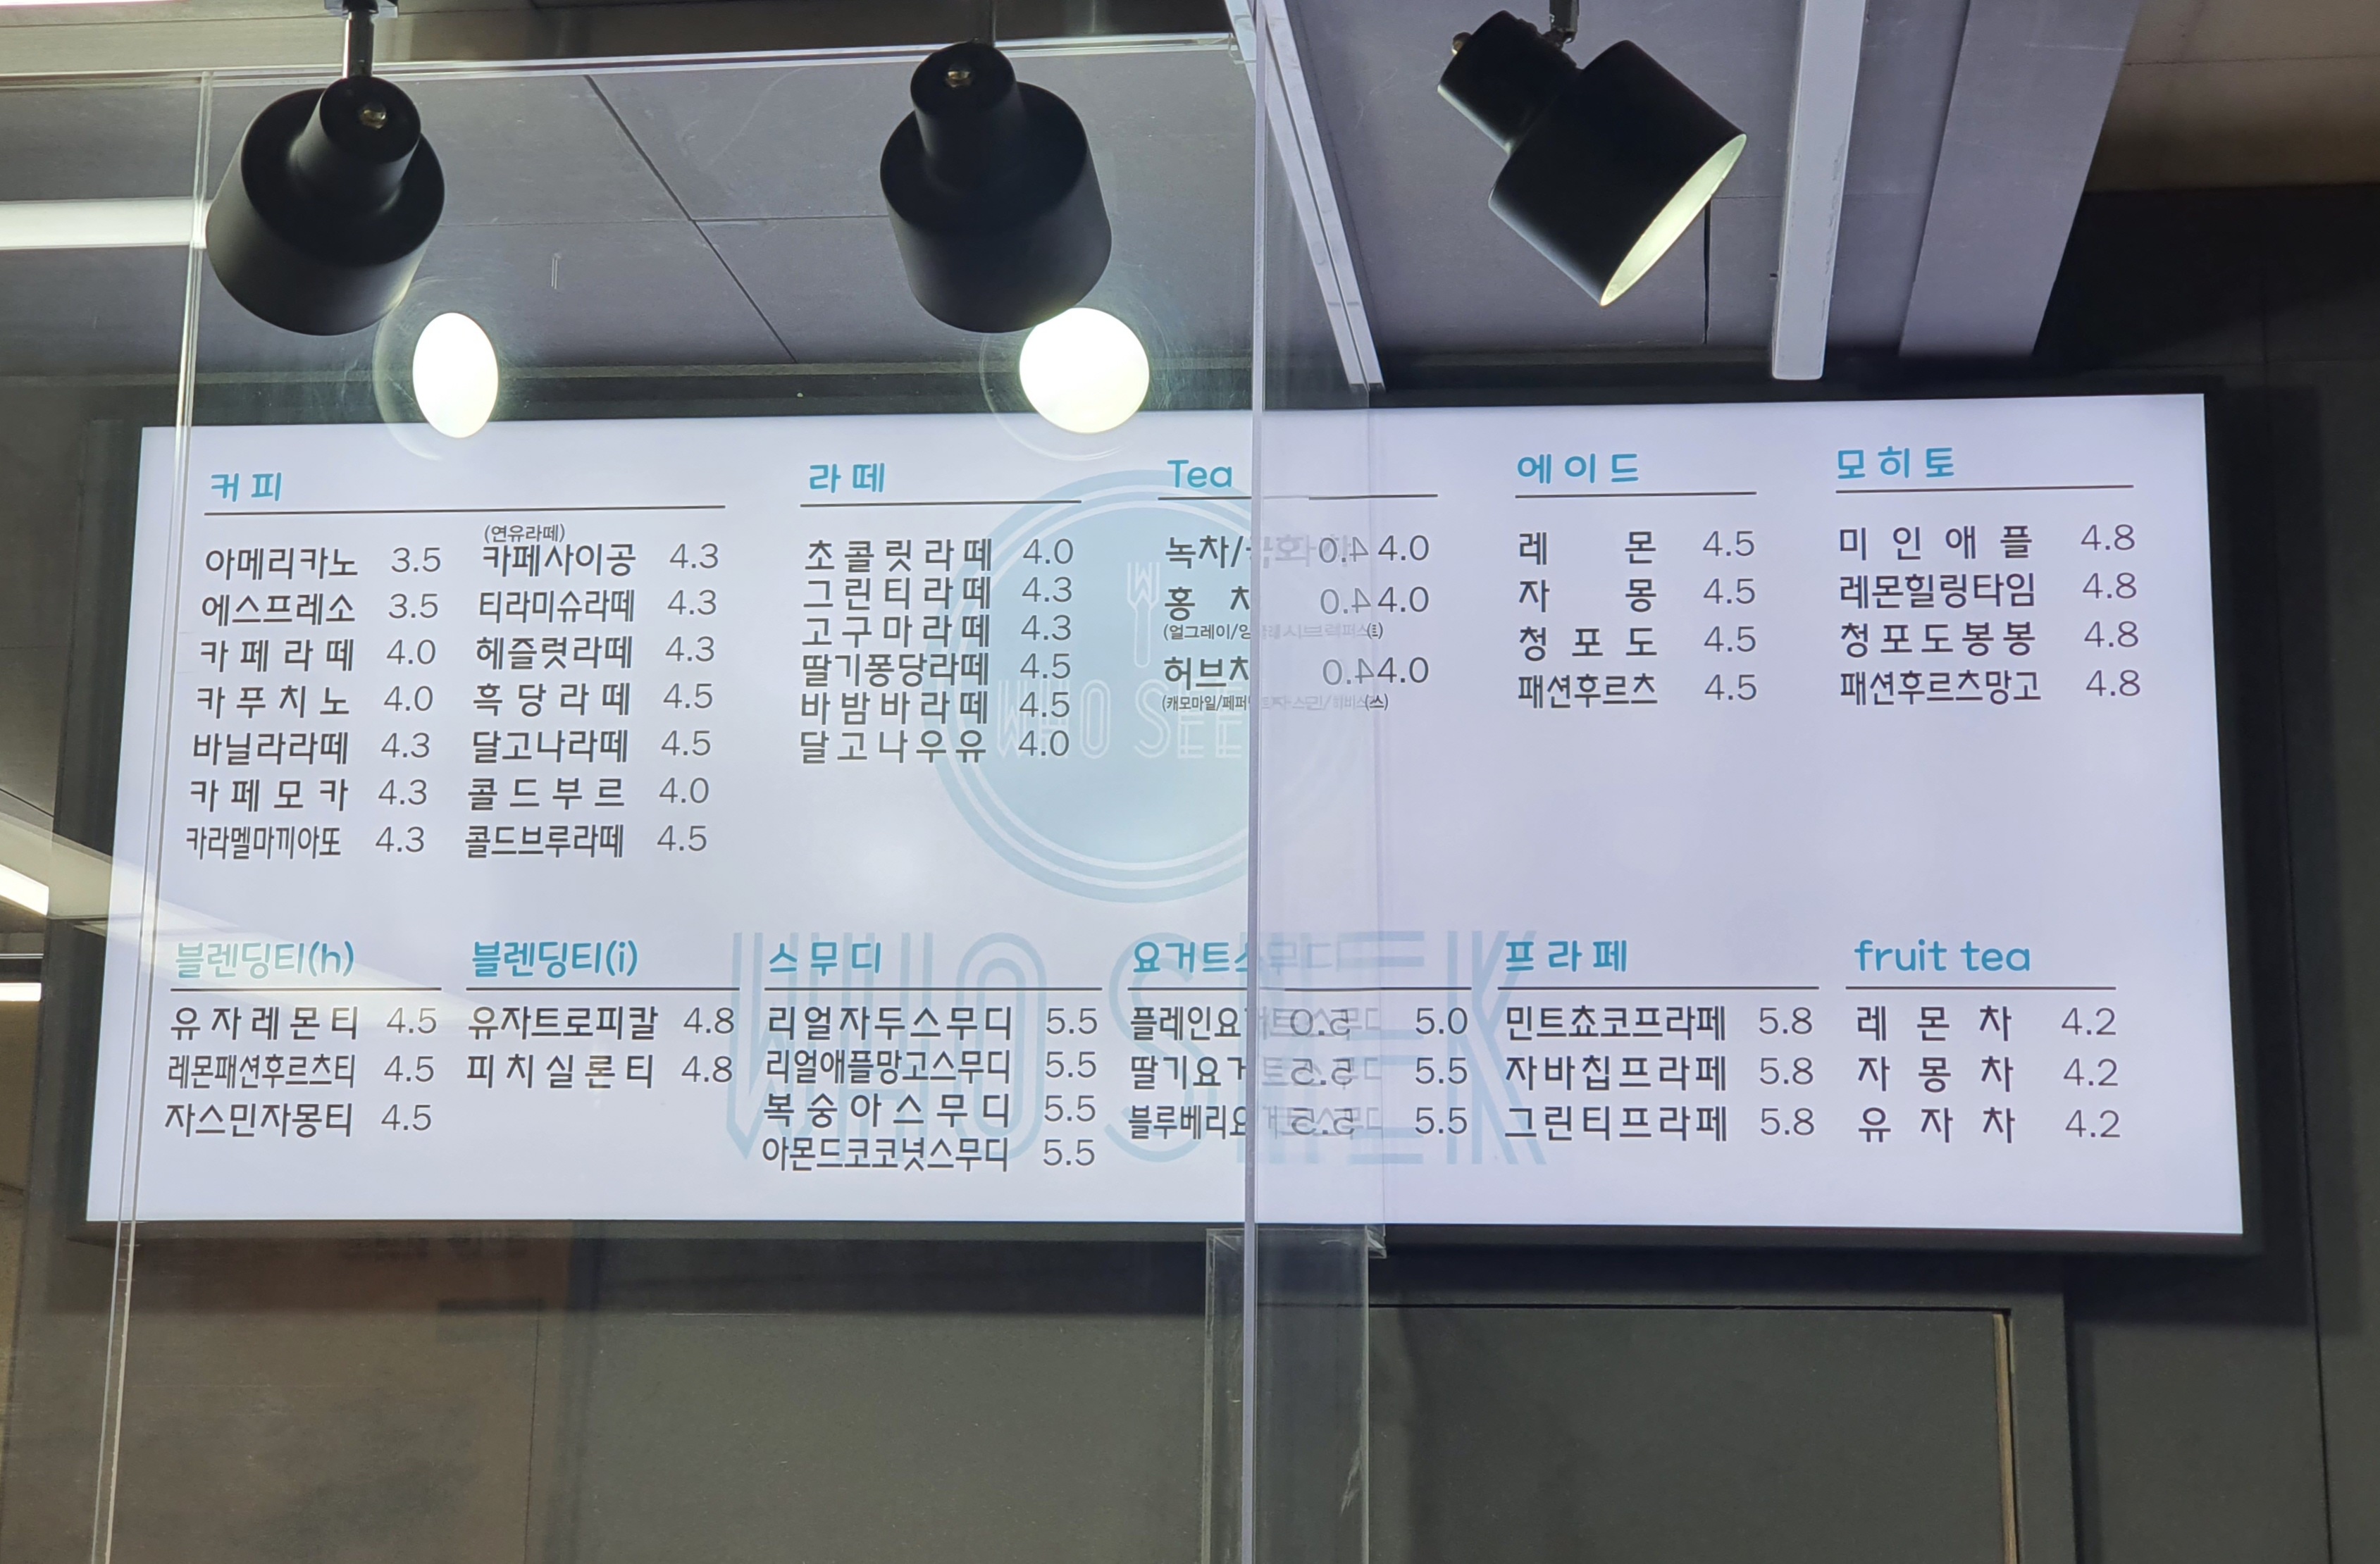 커피
(연유라떼)
아메리카노 3.5 카페사이공 4.3
에스프레소 3.5 티라미슈라떼 4.3
카페라떼 4.0 헤즐럿라떼 4.3
카푸치노 4.0 흑당라떼 4.5
바닐라라떼 4.3 달고나라떼 4.5
카페모카 4.3 콜드부르 4.0
카라멜마끼아또 4.3 콜드브루라떼 4.5
라떼
초콜릿라떼 4.0
그린티라떼 4.3
고구마라떼 4.3
딸기퐁당라떼 4.5
바밤바라떼 4.5
달고나우유 4.0
Tea
녹차/ 4.0
홍차 4.0
(얼그레이/
허브차 4.0
(캐모마일/
에이드
레몬 4.5
자몽 4.5
청포도 4.5
패션후르츠 4.5
모히토
미인애플 4.8
레몬힐링타임 4.8
청포도봉봉 4.8
패션후르츠망고 4.8
WHO SEE
블렌딩티(h)
유자레몬티 4.5
레몬패션후르츠티 4.5
자스민자몽티 4.5
블렌딩티(i)
유자트로피칼 4.8
피치실론티 4.8
스무디
리얼자두스무디 5.5
리얼애플망고스무디 5.5
복숭아스무디 5.5
아몬드코코넛스무디 5.5
요거트스무디
플레인요거트스무디 5.0
딸기요거트스무디 5.5
블루베리요거트스무디 5.5
프라페
민트쵸코프라페 5.8
자바칩프라페 5.8
그린티프라페 5.8
fruit tea
레몬차 4.2
자몽차 4.2
유자차 4.2
WHO SEEK